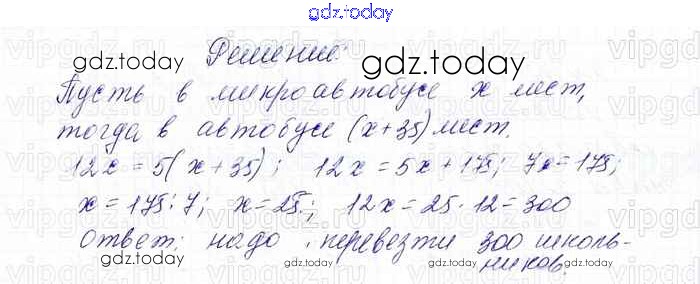 gdz.today
Решение:
gdz.today
gdz.today
Пусть в микроавтобусе x мест,
тогда в автобусе (x+35) мест.
12x = 5(x+35); 12x = 5x+175; 7x=175;
x = 175:7; x=25; 12x = 25·12 = 300
ответ: надо перевезти 300 школь-
ников.
gdz.today gdz.today gdz.today